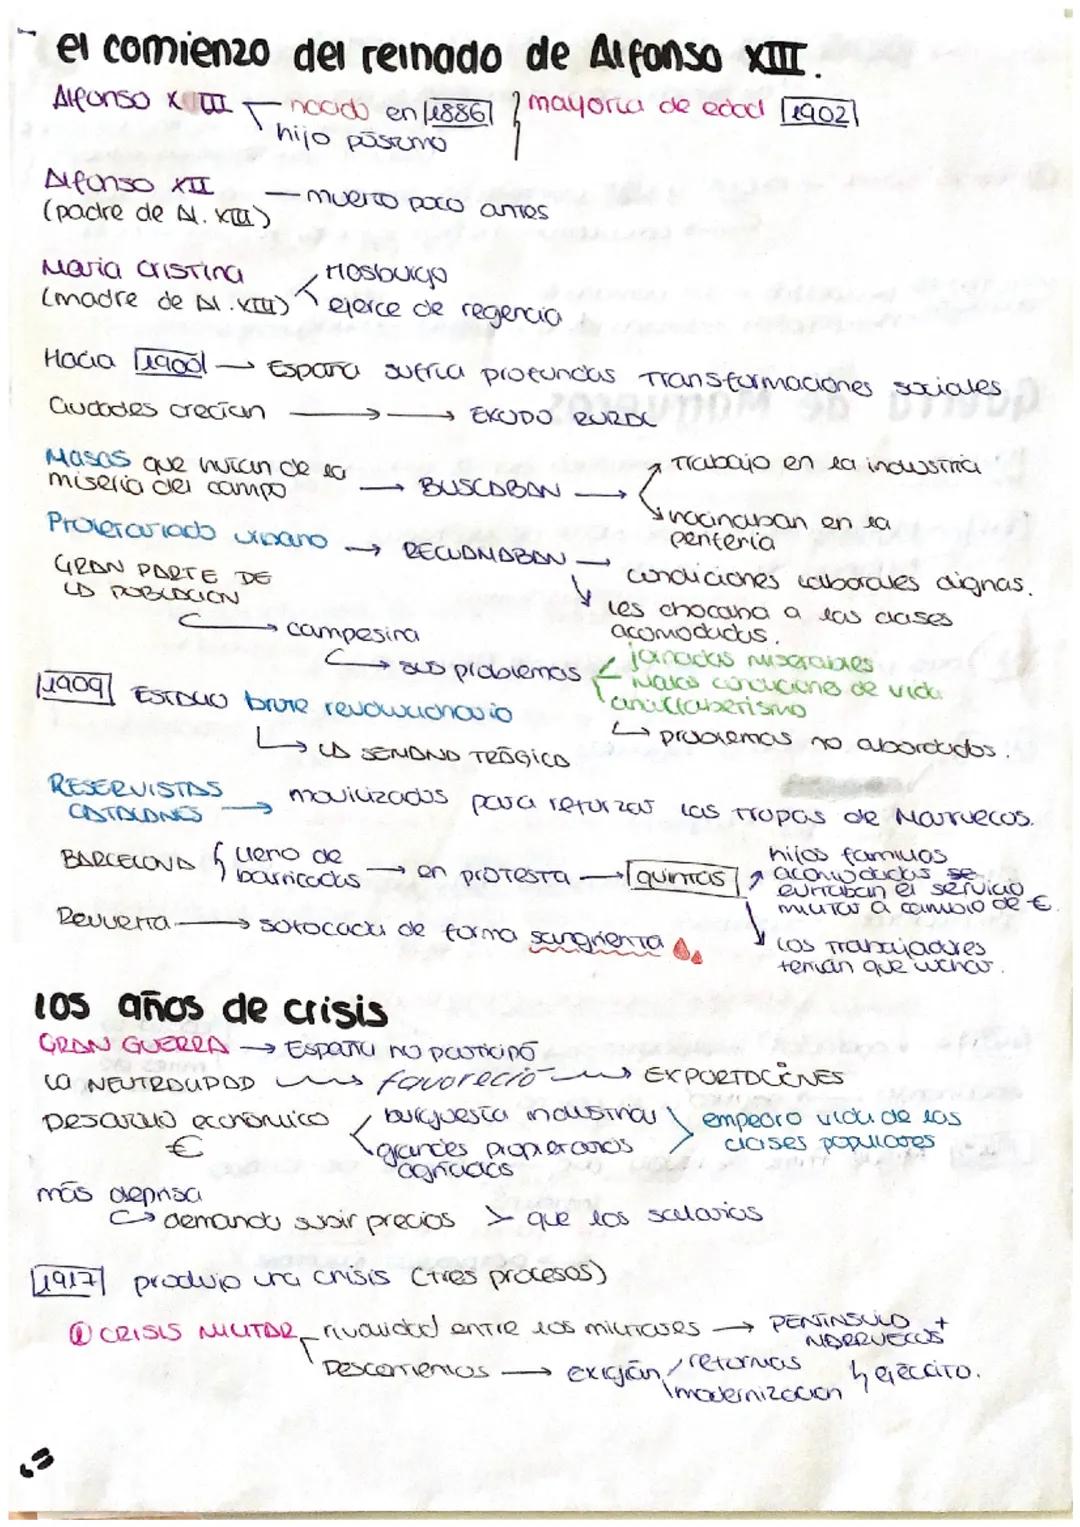 el comienzo del reinado de Alfonso XIII.
Alfonso XIII nacido en 1886 mayoría de edad 1902
hijo póstumo
Alfonso XII
(padre de Al. XIII) — muerto poco antes
Maria Cristina Hasburgo
(madre de Al. XIII) ejerce de regencia
Hacia 1900 → España sufría profundas transformaciones sociales
Ciudades crecían → → EXODO RURAL
Masas que huían de la miseria del campo → BUSCABAN → Trabajo en la industria
hacinaban en la periferia
Proletariado urbano → RECLAMABAN → condiciones laborales dignas.
les chocaba a las clases acomodadas.
GRAN PARTE DE
LA POBLACION
→ campesina
→ sus problemas
jornadas miserables
malas condiciones de vida
analfabetismo
→ problemas no abordados.
1909 ESTALLO brote revolucionario
→ LA SEMANA TRÁGICA
RESERVISTAS
CATALANES → movilizados para reforzar las tropas de Marruecos.
BARCELONA lleno de barricadas → en protesta → quintas
hijos familias
acomodadas se
evitaban el servicio
militar a cambio de €.
los trabajadores
tenían que luchar.
Revuelta → sofocada de forma sangrienta
los años de crisis
GRAN GUERRA → España no participó
la NEUTRALIDAD favoreció EXPORTACIONES
DESARROLLO económico
€
burguesía industrial
grandes propietarios
agrícolas
empeoró vida de las
clases populares
más deprisa
→ demanda subir precios > que los salarios
1917 produjo una crisis (tres procesos)
① CRISIS MILITAR rivalidad entre los militares → PENÍNSULA +
MARRUECOS
Descontentos → exigían reformas
modernización
ejército.